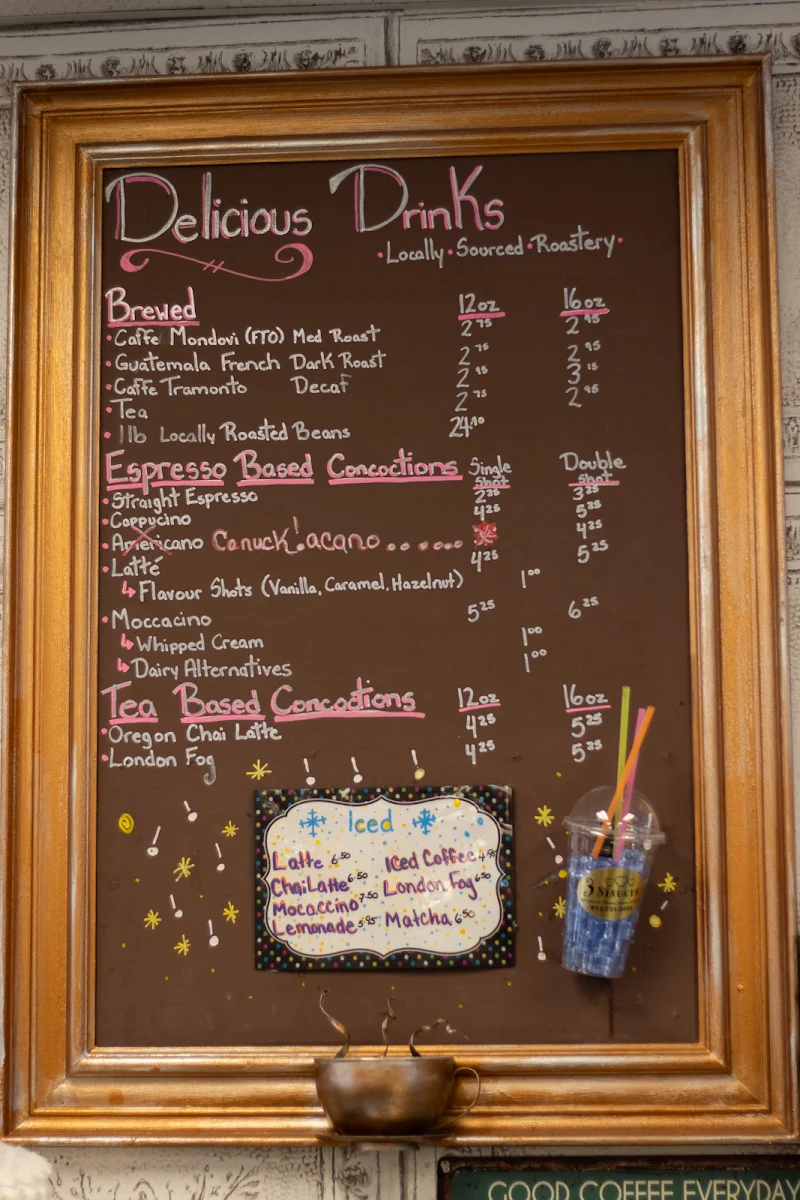 Delicious Drinks
·Locally·Sourced·Roastery·
Brewed 12oz 16oz
·Caffe Mondovi (FTO) Med Roast 2 75 2 95
·Guatemala French Dark Roast 2 75 2 95
·Caffe Tramonto Decaf 2 95 3 15
·Tea 2 75 2 95
·1lb Locally Roasted Beans 24
Espresso Based Concoctions Single Shot Double Shot
·Straight Espresso 2 25 3 25
·Cappucino 4 25 5 25
·Americano Canuck!acano........ 4 25
·Latté 4 25 5 25
↳Flavour Shots (Vanilla, Caramel, Hazelnut) 1 00
·Moccacino 5 25 6 25
↳Whipped Cream 1 00
↳Dairy Alternatives 1 00
Tea Based Concoctions 12oz 16oz
·Oregon Chai Latte 4 25 5 25
·London Fog 4 25 5 25
Iced
Latte 6.50 Iced Coffee 4.95
Chai Latte 6.50 London Fog 6.50
Mocaccino 7.50
Lemonade 5.95 Matcha 6.50
3 Sisters
GOOD COFFEE EVERYDAY